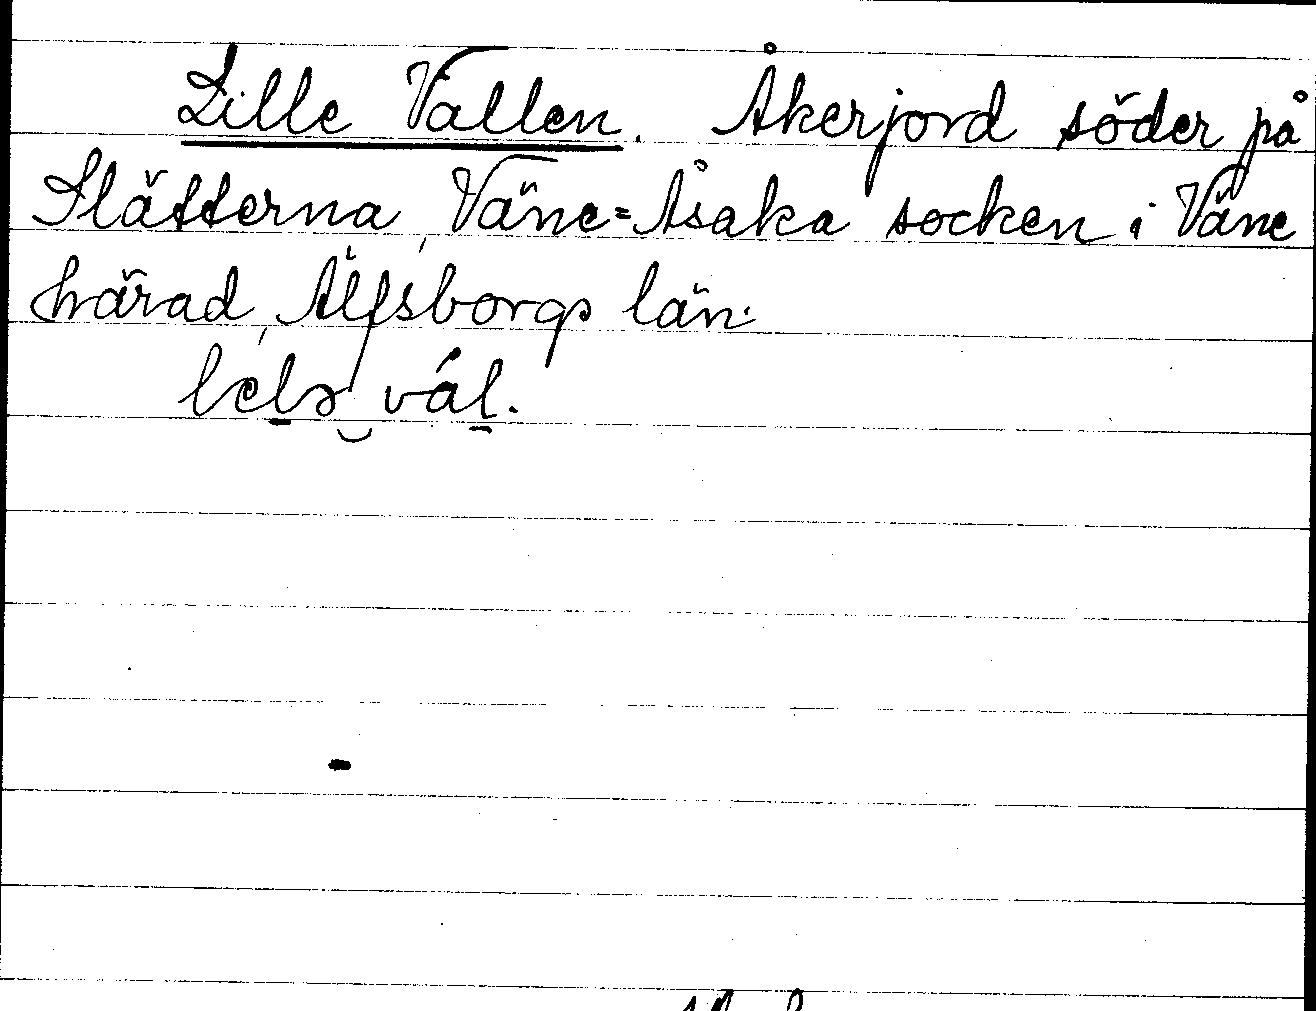 Lille Vallen. Åkerjord söder på
Slätterna, Väne=Åsaka socken i Väne
härad, Älfsborgs län.
väl.